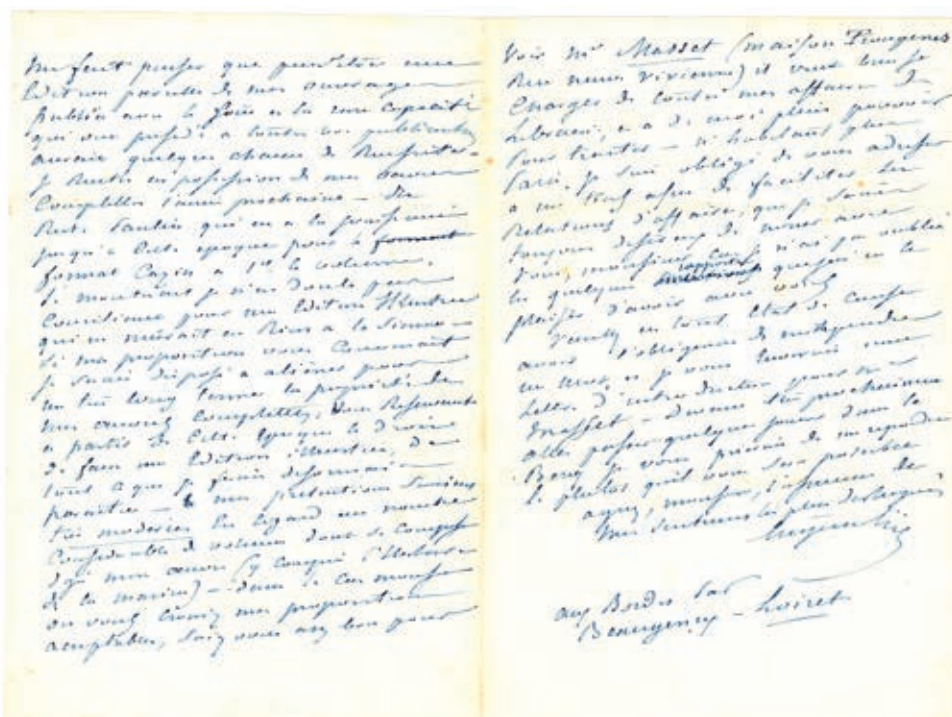 me fait penser que peut être une
Edition pareille de mes ouvrages
publiée avec le soin et la rare capacité
qui ont présidé à toutes vos publications
aurait quelque chance de Reussite -
Je Rentre en possession de mes œuvres
Complettes l'année prochaine -
Paulin qui en a la jouissance
jusqu'à cette époque pour le format
format Cazin à 1f le volume.
pour
une Edition Illustrée
qui ne nuirait en Rien à la sienne -
Si ma proposition vous Convenait
Je serais disposé à aliéner pour
un très long terme la propriété de
mes œuvres Complettes, vous Reservant
à partir de cette époque le droit
de faire une Edition illustrée, de
tout ce que je ferais désormais
paraître - mes prétentions seraient
très modérées En égard au nombre
Considérable de volumes dont se Compose
déjà mon œuvre (y Compris l'histoire
de la marine) - dans le Cas monsieur
où vous Croiriez mes propositions
acceptables, soyez assez bon pour
Voir Mr Masset (maison
Rue neuve Vivienne) il veut bien se
Charger de toutes mes affaires de
Librairie, et a de moi plein pouvoir
pour traiter - n'habitant plus
Paris, je suis obligé de vous adresser
à un tiers afin de faciliter les
Relations d'affaires, que je serais
toujours désireux de nouer avec
vous, monsieur, Car je n'ai pas oublié
les quelques rapports que j'ai eu le
plaisir d'avoir avec vous
Veuillez en tout Etat de Cause
avoir l'obligeance de me répondre
un mot, et je vous enverrais une
Lettre d'introduction pour Mr
Masset - Devant très prochainement
aller passer quelques jours dans le
Berry je vous prierais de me répondre
le plutôt qu'il vous sera possible
agréez, monsieur, l'assurance de
mes sentiments les plus distingués
Eugène Süe
aux Bordes par
Beaugency - Loiret